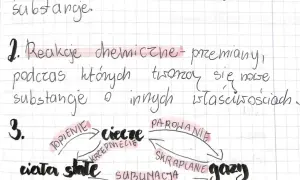 substancje.
2. Reakcje chemiczne - przemiany,
podczas których tworzą się nowe
substancje o innych właściwościach.
3.
TOPIENIE ciecze PAROWANIE
KRZEPNIĘCIE SKRAPLANIE
ciała stałe gazy
SUBLIMACJA